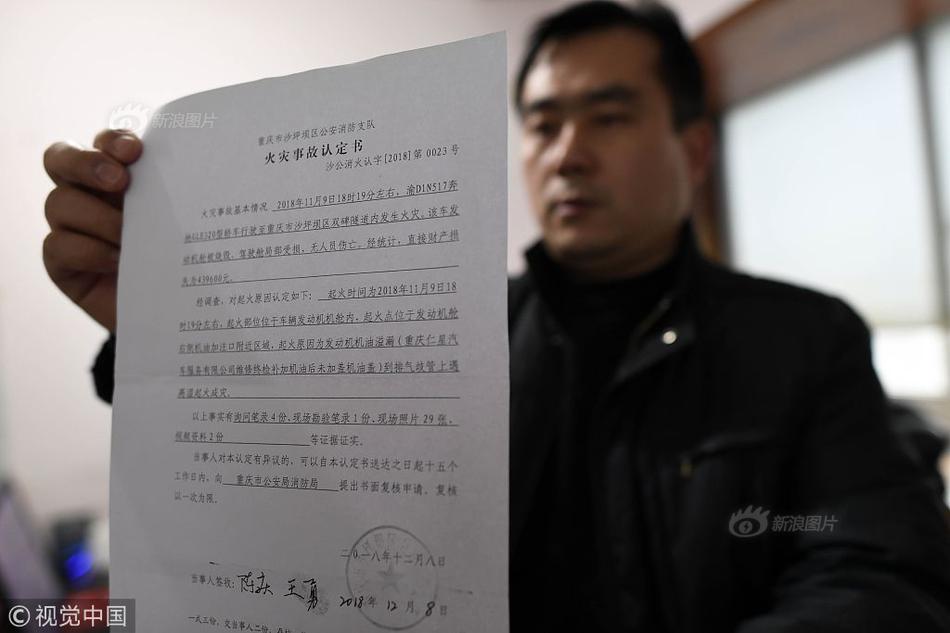 新浪图片
重庆市沙坪坝区公安消防支队
火灾事故认定书
沙公消火认字[2018]第 0023 号
火灾事故基本情况 2018年11月9日18时19分左右，渝D1N517奔
驰GLE320型轿车行驶至重庆市沙坪坝区双碑隧道内发生火灾。该车发
动机舱被烧毁，驾驶舱局部受损，无人员伤亡。经统计，直接财产损
失为439600元。
经调查，对起火原因认定如下： 起火时间为2018年11月9日18
时19分左右，起火部位位于车辆发动机机舱内，起火点位于发动机舱
右侧机油加注口附近区域，起火原因为发动机机油溢漏（重庆仁星汽
车服务有限公司维修终检补加机油后未加盖机油盖）到排气歧管上遇
高温起火成灾。
以上事实有询问笔录4份、现场勘验笔录1份、现场照片 29 张、
视频资料2份 等证据证实。
当事人对本认定有异议的，可以自本认定书送达之日起十五个
工作日内，向 重庆市公安局消防局 提出书面复核申请。复核
以一次为限。
二〇一八年十二月八日
当事人签收： 王勇 2018年 12月 8日
一式三份，交当事人二份，
新浪图片
© 视觉中国